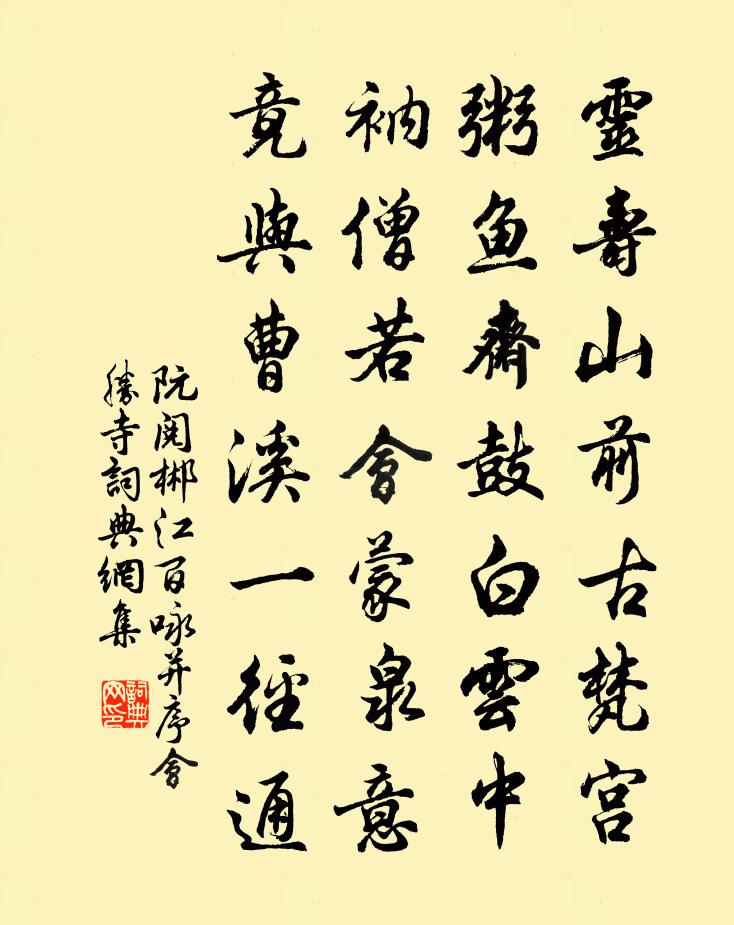 靈壽山前古梵宮
粥魚齋鼓白雲中
衲僧若會蒙泉意
竟與曹溪一徑通
阮閱郴江百咏并序會
勝寺詞典網集
詞典网印